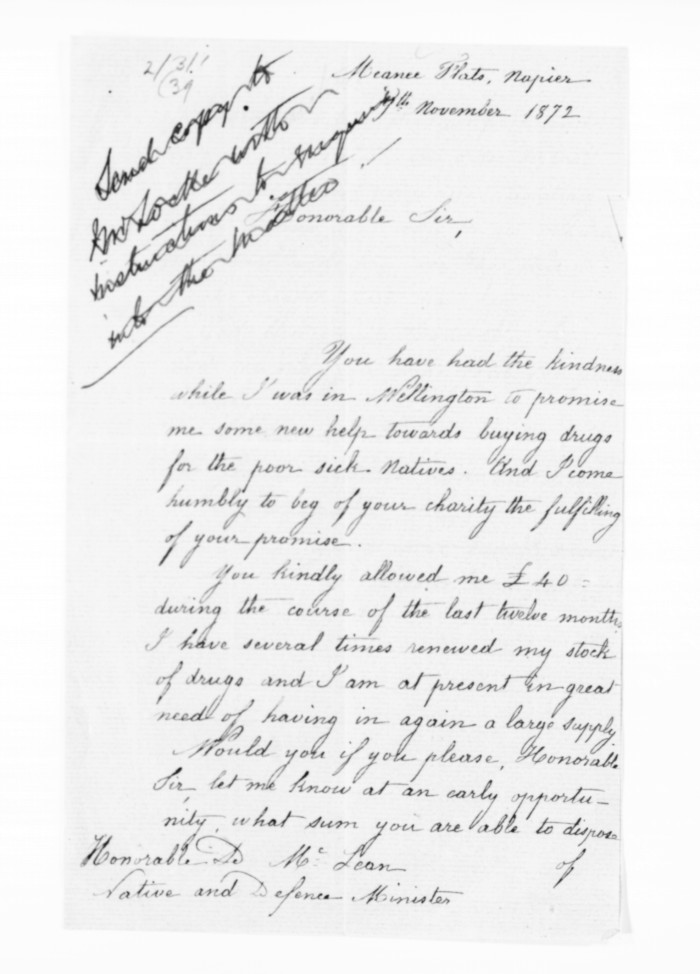 2/31!
(39
Send copy to
Mr Locke with
instructions to inquire
into the matter
Meanee Flats, Napier
November 1872
Honorable Sir,
You have had the kindness
while I was in Wellington to promise
me some new help towards buying drugs
for the poor sick Natives. And I come
humbly to beg of your charity the fulfilling
of your promise.
You kindly allowed me £40 =
during the course of the last twelve months
I have several times renewed my stock
of drugs and I am at present in great
need of having in again a large supply
Would you if you please, Honorable
Sir, let me know at an early opportu-
nity, what sum you are able to dispose
of
Honorable D Mc Lean
Native and Defence Minister